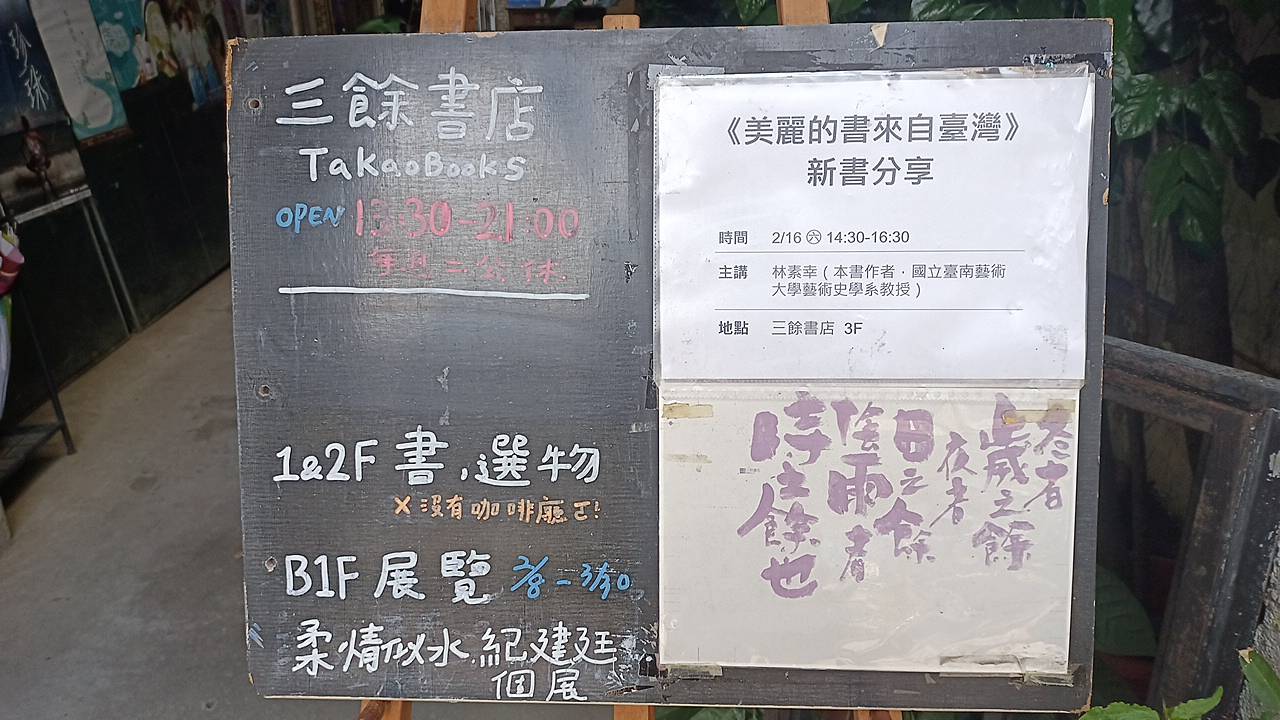 珍珠
三餘書店
TaKaoBooKs
OPEN 13:30-21:00
每週二公休
1&2F 書,選物
X 沒有咖啡廳ㄛ!
B1F 展覽 2/8-3/30
柔情似水 紀建廷
個展
《美麗的書來自臺灣》
新書分享
時間 2/16 ㊅ 14:30-16:30
主講 林素幸(本書作者.國立臺南藝術
大學藝術史學系教授)
地點 三餘書店 3F
冬者
歲之餘
夜者
日之餘
陰雨者
時之餘也